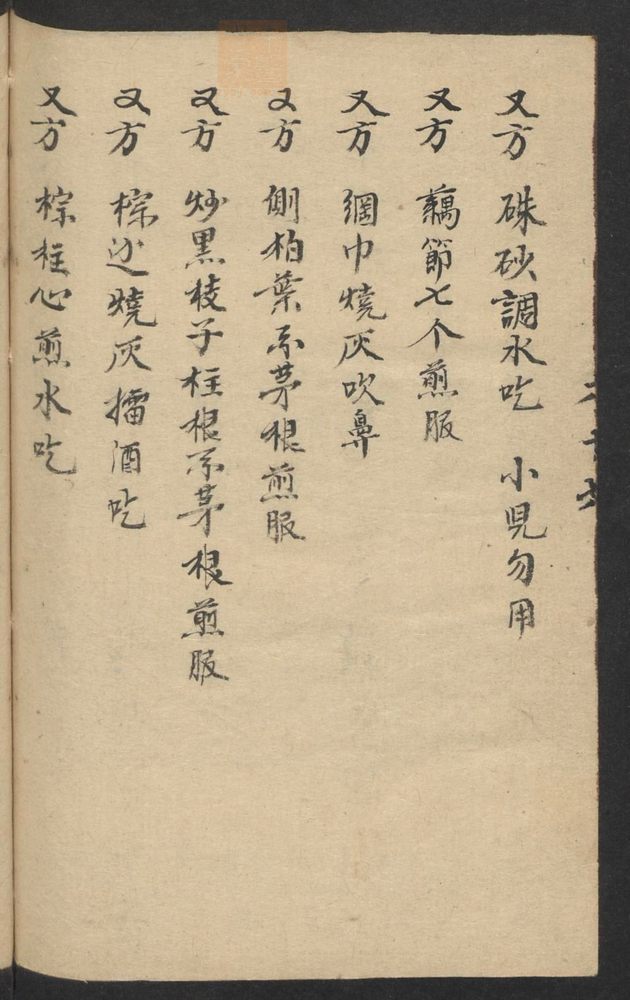 又方 硃砂調水吃 小児勿用
又方 藕節七个煎服
又方 網巾燒灰吹鼻
又方 側柏葉糸茅根煎服
又方 炒黑枝子柱根糸茅根煎服
又方 棕燒灰擂酒吃
又方 棕柱心煎水吃